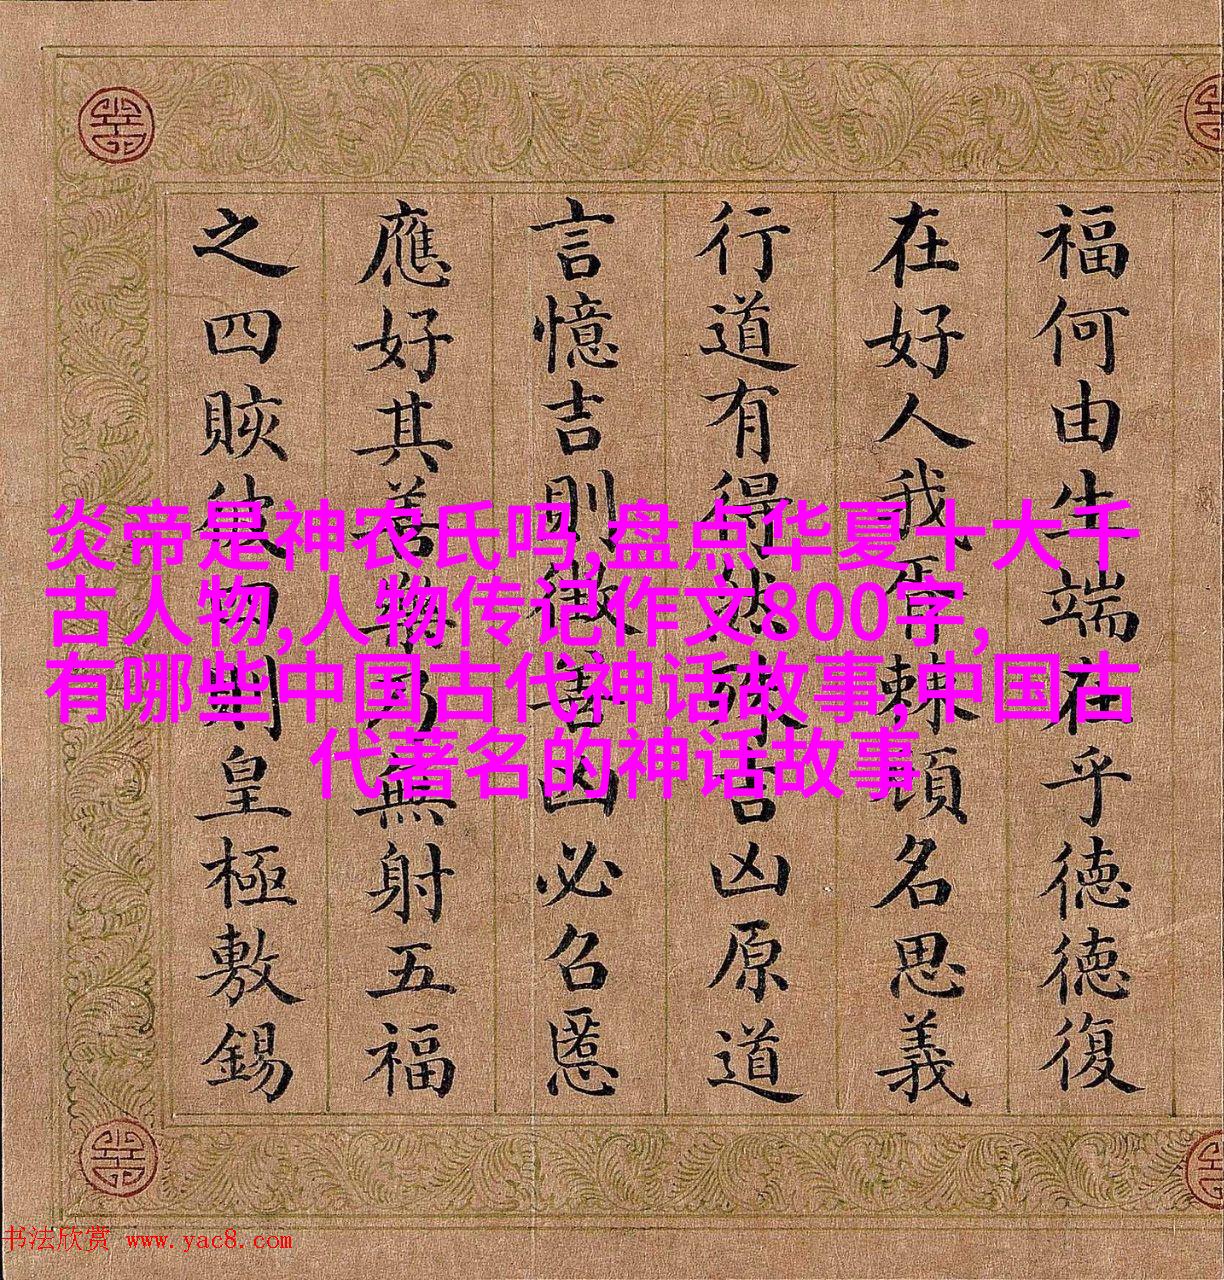 福何由生端在乎徳徳復
在好人我名思義
行道有得吉凶原道
言憶吉則徴凶必召慝
應好其善無射五福
之四賅皇極敷錫
炎帝是神农氏吗,盘点华夏十大千
古人物,人物传记作文800字,
有哪些中国古代神话故事,中国古
代著名的神话故事
书法欣赏 www.yac8.com